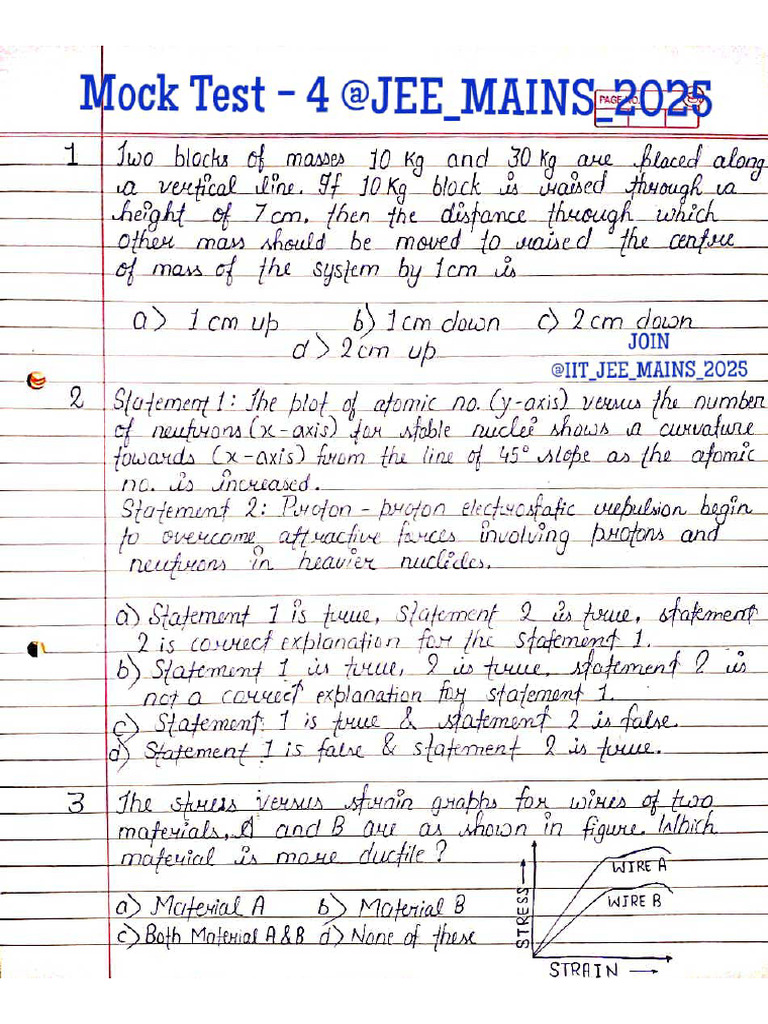 Mock Test - 4 @JEE_MAINS_2025
PAGE NO.
1 Two blocks of masses 10 Kg and 30 Kg are placed along
a vertical line. If 10 Kg block is raised through a
height of 7 cm. then the distance through which
other mass should be moved to raised the centre
of mass of the system by 1 cm is
a) 1 cm up b) 1 cm down c) 2 cm down
d) 2 cm up
JOIN
@IIT_JEE_MAINS_2025
2 Statement 1: The plot of atomic no. (y-axis) versus the number
of neutrons (x-axis) for stable nuclei shows a curvature
towards (x-axis) from the line of 45° slope as the atomic
no. is increased.
Statement 2: Proton-proton electrostatic repulsion begin
to overcome attractive forces involving protons and
neutrons in heavier nuclides.
a) Statement 1 is true, statement 2 is true, statement
2 is correct explanation for the statement 1.
b) Statement 1 is true, 2 is true, statement 2 is
not a correct explanation for statement 1.
c) Statement 1 is true & statement 2 is false.
d) Statement 1 is false & statement 2 is true.
3 The stress versus strain graphs for wires of two
materials, A and B are as shown in figure. Which
material is more ductile?
a) Material A b) Material B
c) Both Material A & B d) None of these
STRESS
WIRE A
WIRE B
STRAIN